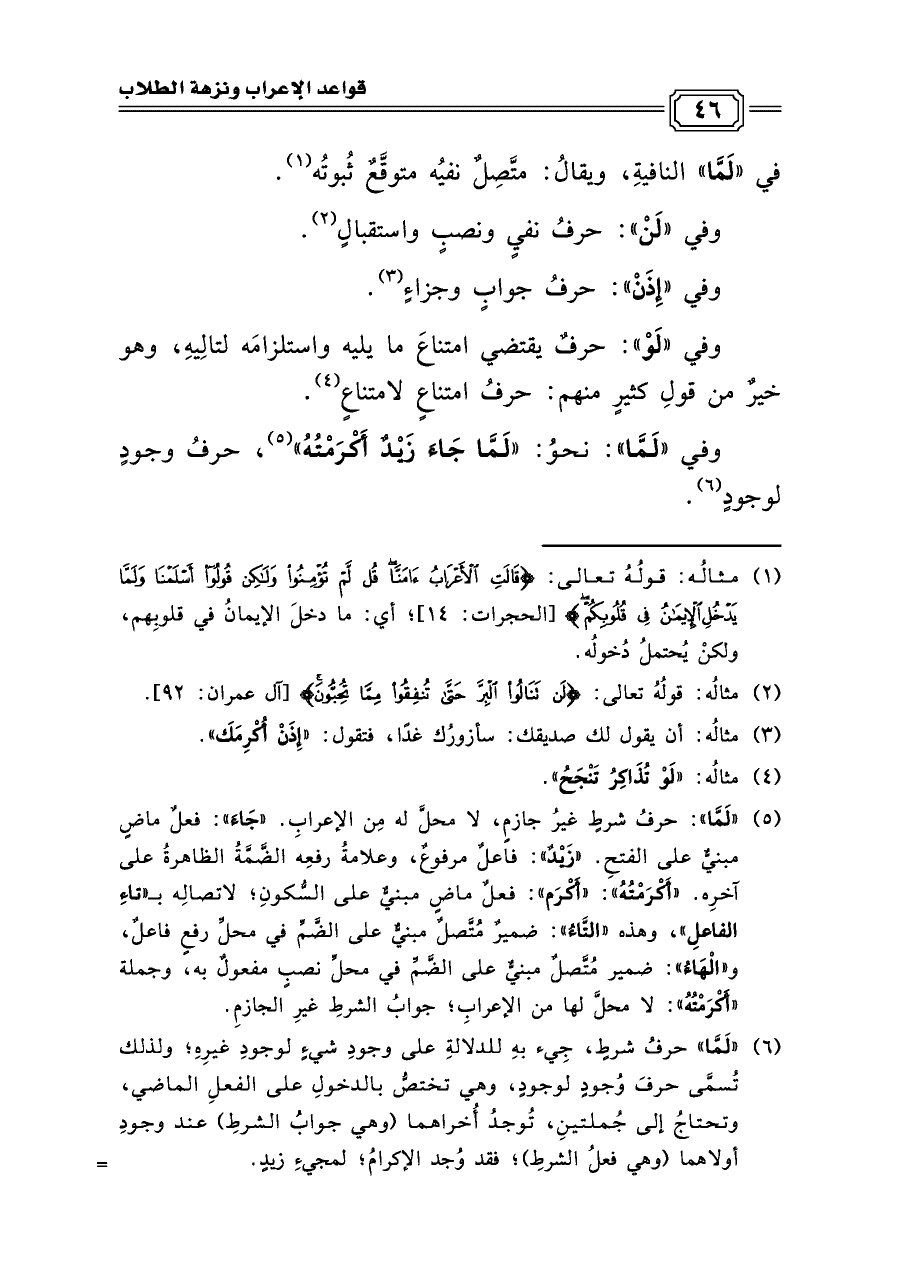 قواعد الإعراب ونزهة الطلاب
٤٦
في «لَمَّا» النافيةِ، ويقالُ: متَّصِلٌ نفيُه متوقَّعٌ ثُبوتُه(١).
وفي «لَنْ»: حرفُ نفيٍ ونصبٍ واستقبالٍ(٢).
وفي «إِذَنْ»: حرفُ جوابٍ وجزاءٍ(٣).
وفي «لَوْ»: حرفٌ يقتضي امتناعَ ما يليه واستلزامَه لتالِيهِ، وهو
خيرٌ من قولِ كثيرٍ منهم: حرفُ امتناعٍ لامتناعٍ(٤).
وفي «لَـمَّا»: نحوُ: «لَـمَّا جَاءَ زَيْدٌ أَكْرَمْتُهُ»(٥)، حرفُ وجودٍ
لوجودٍ(٦).
(١) مثـالُـه: قـولُـهُ تـعـالى: ﴿قَالَتِ ٱلْأَعْرَابُ ءَامَنَّاۖ قُل لَّمْ تُؤْمِنُوا۟ وَلَـٰكِن قُولُوٓا۟ أَسْلَمْنَا وَلَمَّا
يَدْخُلِ ٱلْإِيمَـٰنُ فِى قُلُوبِكُمْۖ﴾ [الحجرات: ١٤]؛ أي: ما دخلَ الإيمانُ في قلوبِهم،
ولكنْ يُحتملُ دُخولُه.
(٢) مثالُه: قولُهُ تعالى: ﴿لَن تَنَالُوا۟ ٱلْبِرَّ حَتَّىٰ تُنفِقُوا۟ مِمَّا تُحِبُّونَۚ﴾ [آل عمران: ٩٢].
(٣) مثالُه: أن يقول لك صديقك: سأزورُك غدًا، فتقول: «إِذَنْ أُكْرِمَكَ».
(٤) مثالُه: «لَوْ تُذَاكِرُ تَنْجَحُ».
(٥) «لَمَّا»: حرفُ شرطٍ غيرُ جازمٍ، لا محلَّ له مِن الإعرابِ. «جَاءَ»: فعلٌ ماضٍ
مبنيٌّ على الفتحِ. «زَيْدٌ»: فاعلٌ مرفوعٌ، وعلامةُ رفعِه الضَّمَّةُ الظاهرةُ على
آخرِه. «أَكْرَمْتُهُ»: «أَكْرَم»: فعلٌ ماضٍ مبنيٌّ على السُّكونِ؛ لاتصالِه بـ«تاءِ
الفاعلِ»، وهذه «التَّاءُ»: ضميرٌ مُتَّصلٌ مبنيٌّ على الضَّمِّ في محلِّ رفعٍ فاعلٌ،
و«الْهَاءُ»: ضمير مُتَّصلٌ مبنيٌّ على الضَّمِّ في محلِّ نصبٍ مفعولٌ به، وجملة
«أَكْرَمْتُهُ»: لا محلَّ لها من الإعرابِ؛ جوابُ الشرطِ غيرِ الجازمِ.
(٦) «لَمَّا» حرفُ شرطٍ، جِيء بهِ للدلالةِ على وجودِ شيءٍ لوجودِ غيرِهِ؛ ولذلك
تُسمَّى حرفَ وُجودٍ لوجودٍ، وهي تختصُّ بالدخولِ على الفعلِ الماضي،
وتحتاجُ إلى جُملتينِ، تُوجدُ أُخراهما (وهي جوابُ الشرطِ) عند وجودِ
أولاهما (وهي فعلُ الشرطِ)؛ فقد وُجد الإكرامُ؛ لمجيءِ زيدٍ.
=